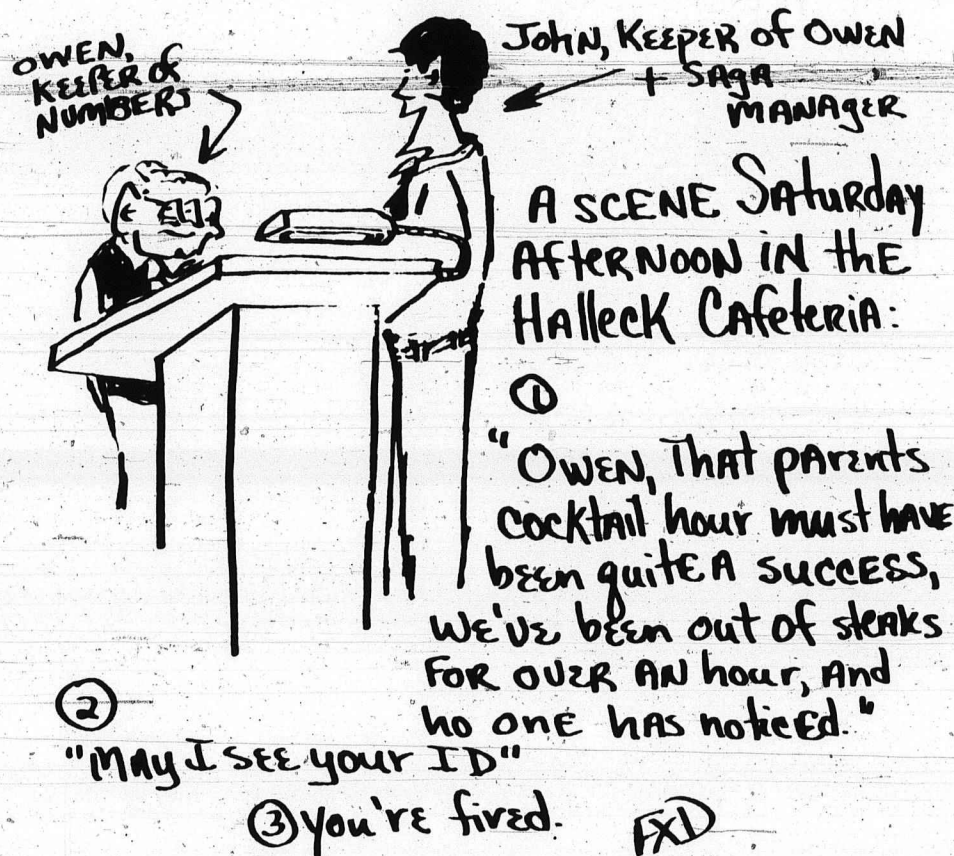 OWEN,
KEEPER of
NUMBERS
John, KEEPER of OWEN
+ SAgA
MANAgER
A SCENE SAtURDAY
AftERNOON iN thE
HAllecK CAfeteRiA:
①
"OWEN, That pArents
cocktail hour must hAVE
been quitE A success,
WE'VE been out of steaks
FOR OVER AN hour, And
no onE hAs noticed."
②
"MAy I SEE your ID"
③ you're fired.
FXD